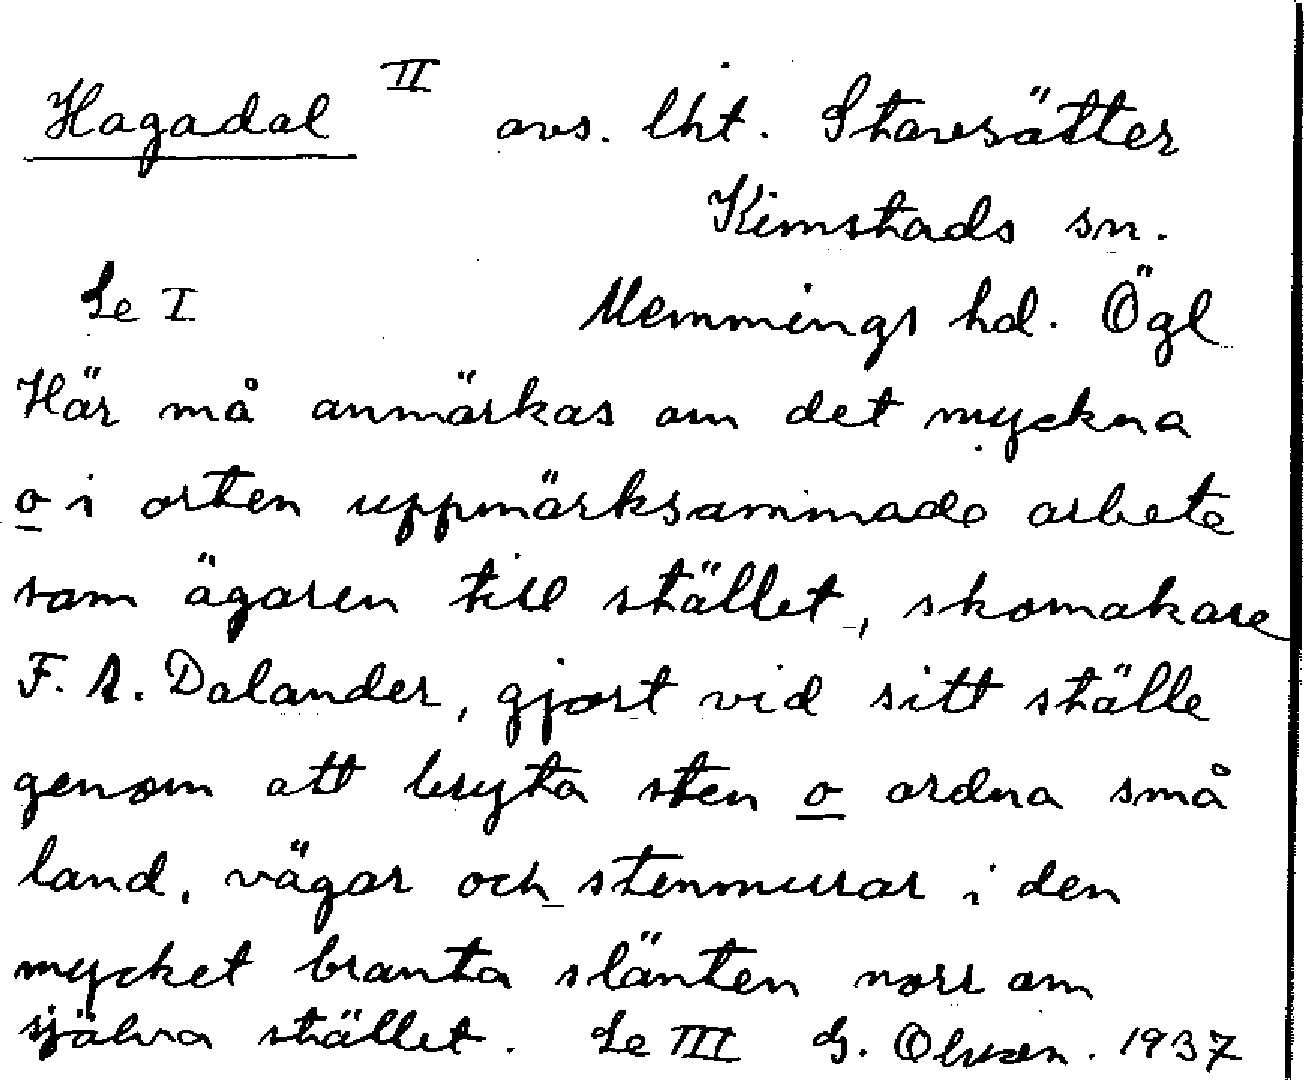 Hagadal II avs. lht. Stavsätter
Kimstads sn.
Se I Memmings hd. Ögl
Här må anmärkas om det myckna
o i orten uppmärksammade arbete
som ägaren till stället, skomakare
F. A. Dalander, gjort vid sitt ställe
genom att bryta sten o ordna små
land, vägar och stenmurar i den
mycket branta slänten norr om
själva stället. Se III G. Olsson. 1937